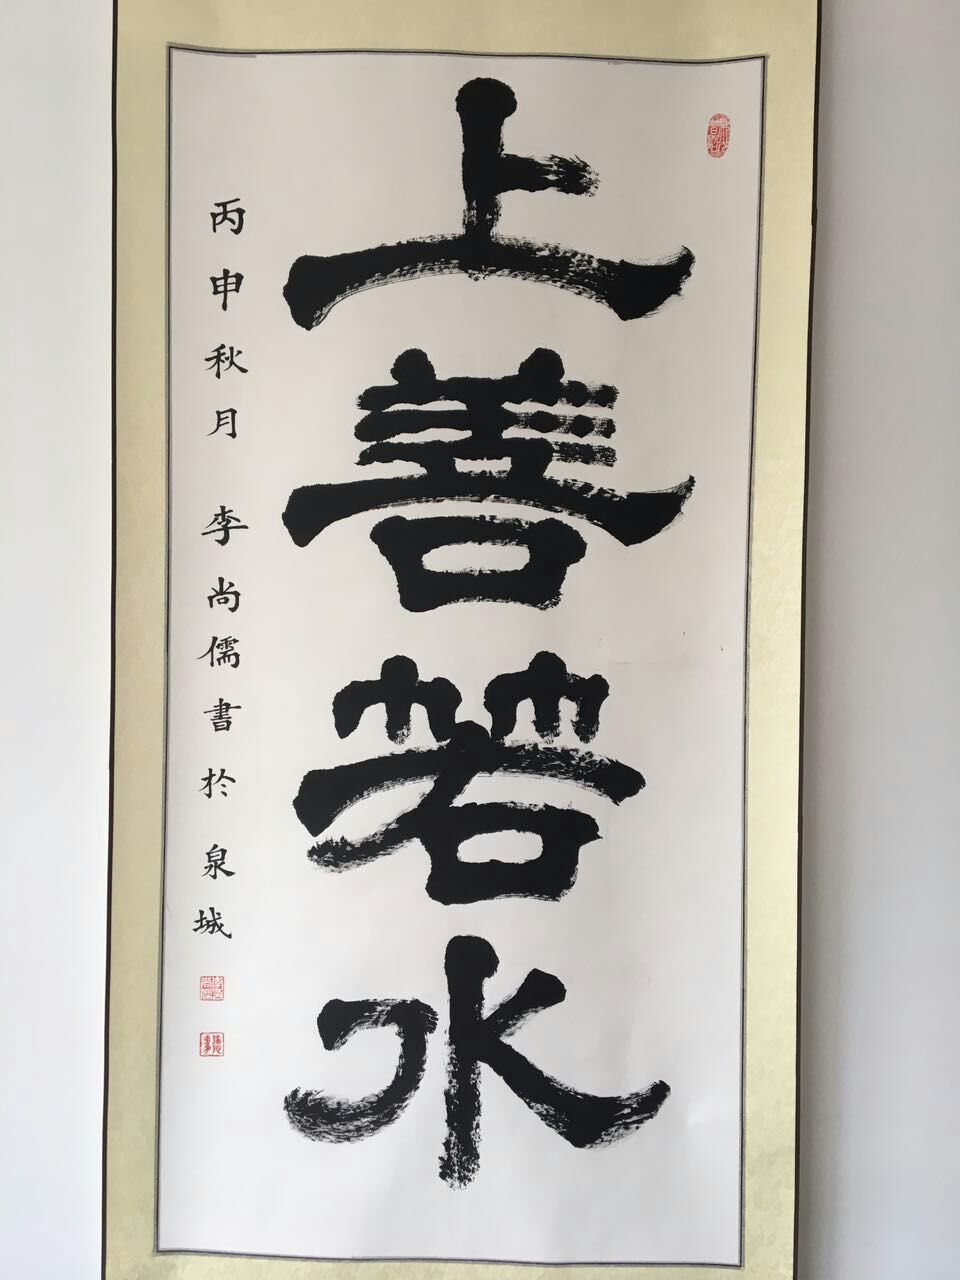 上善若水
丙申秋月 李尚儒書於泉城